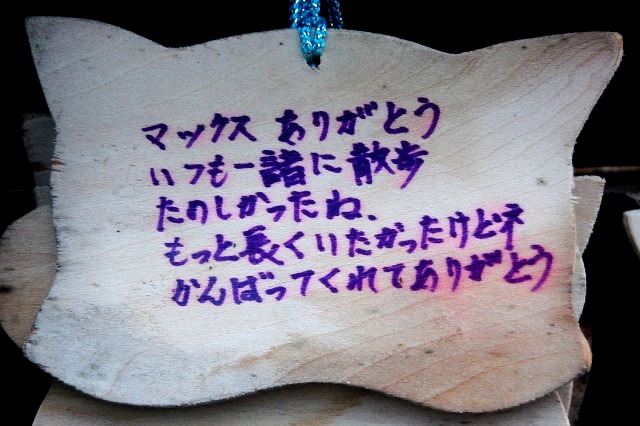 マックス ありがとう
いつも一諸に散歩
たのしかったね、
もっと長くいたかったけどネ
がんばってくれてありがとう